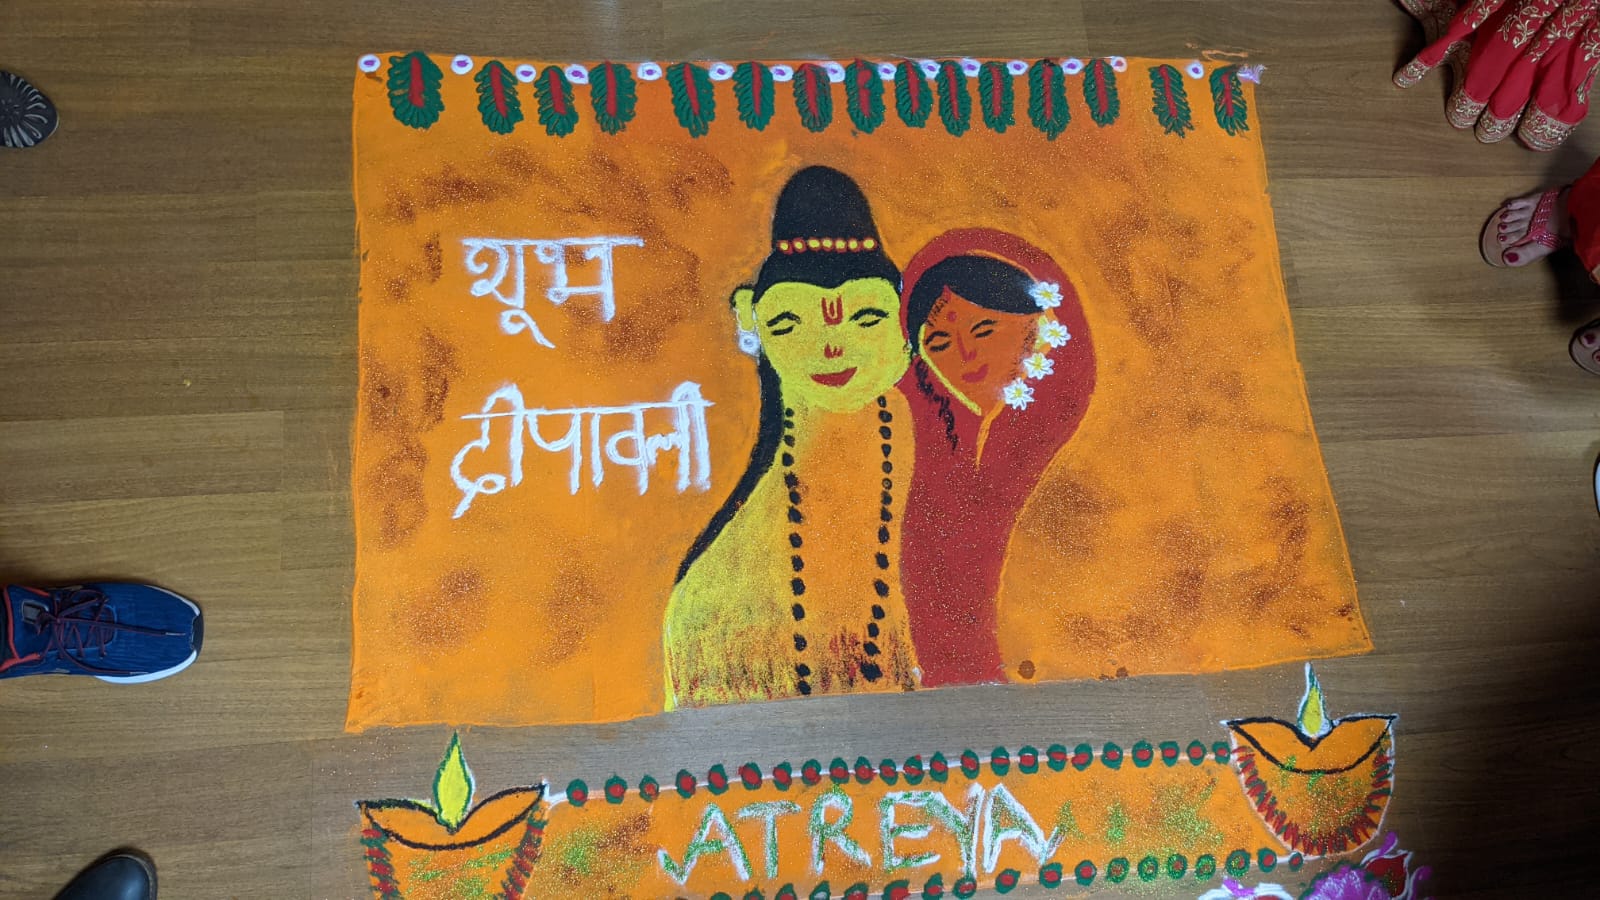 शूभ
दीपावली
ATREYA